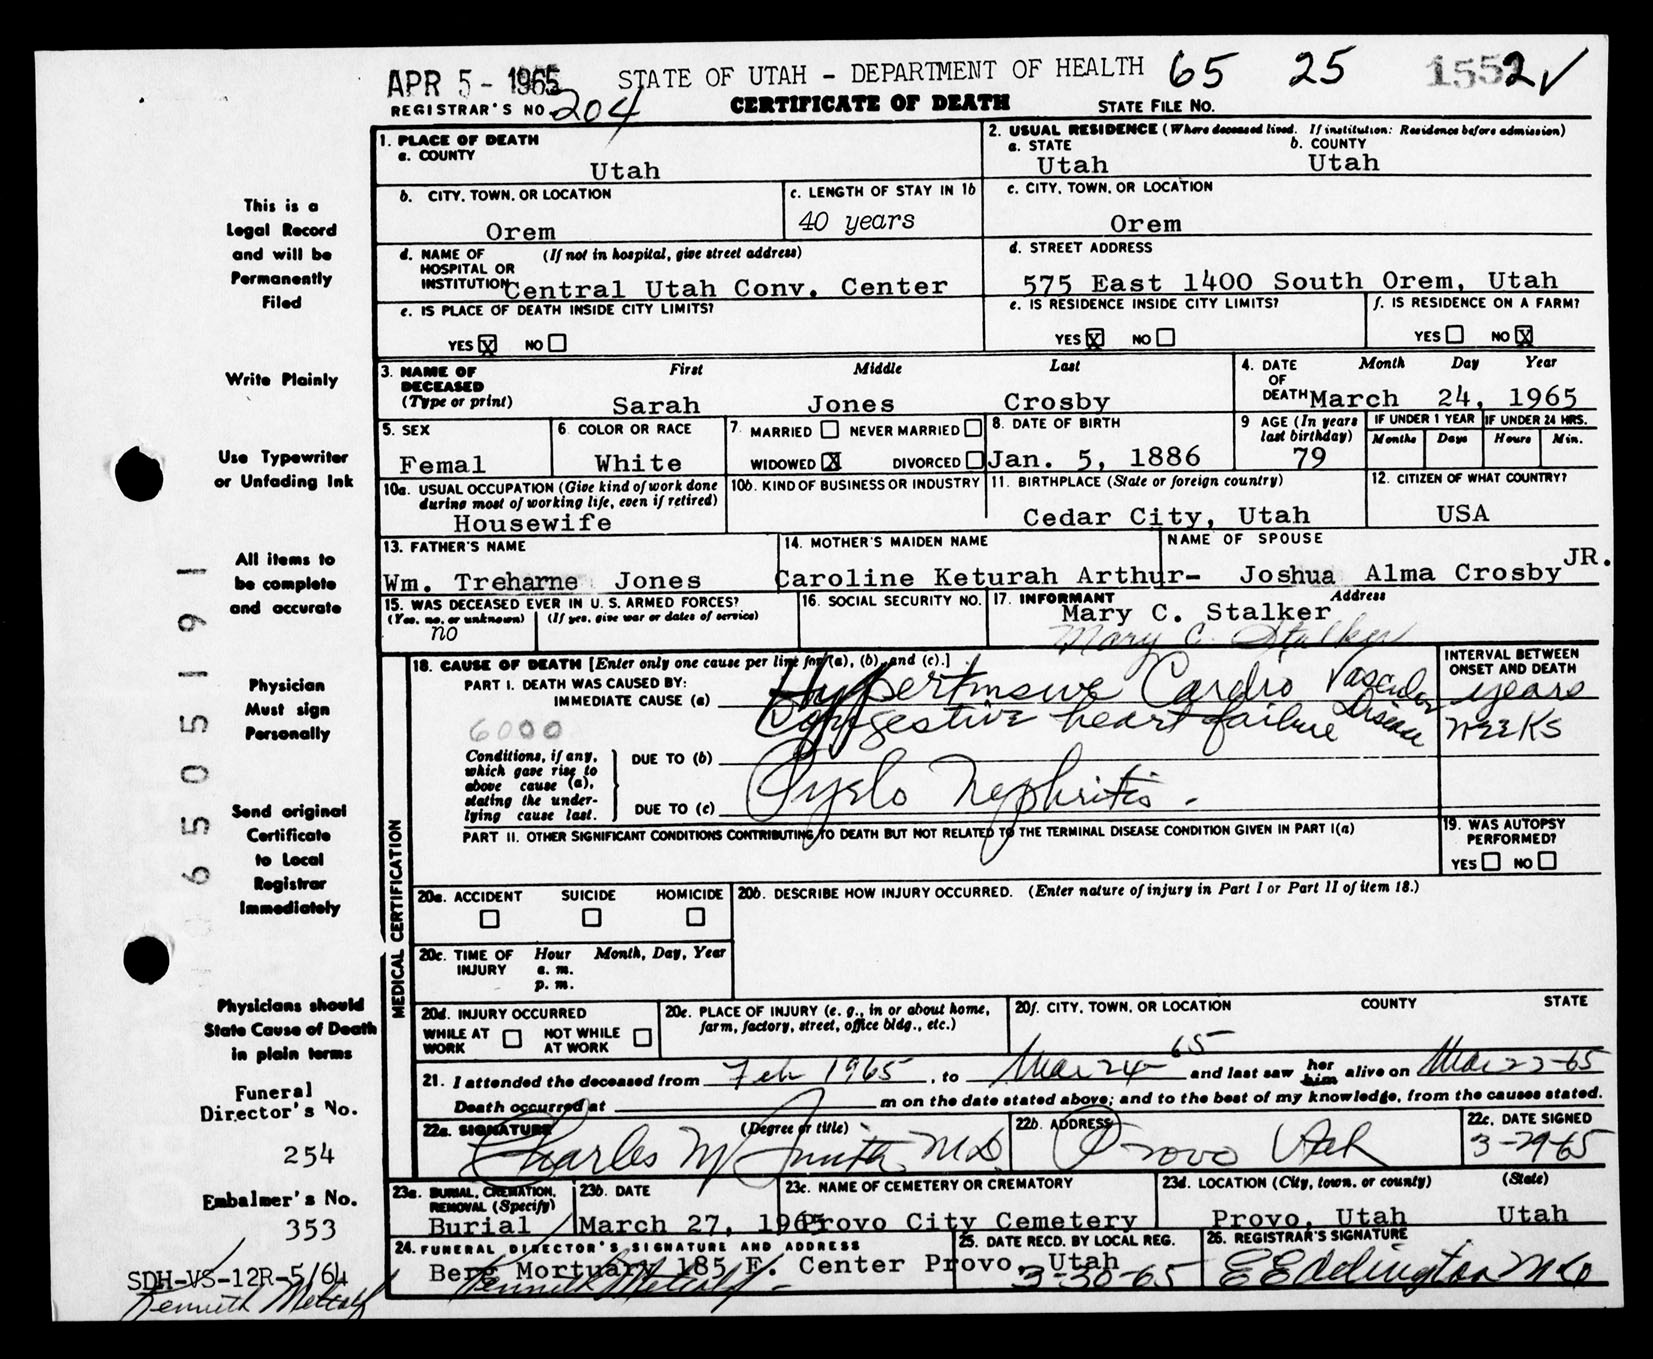 APR 5 - 1965 STATE OF UTAH - DEPARTMENT OF HEALTH 65 25 1552 ✓
REGISTRAR'S NO. 204 CERTIFICATE OF DEATH STATE FILE NO.
This is a
Legal Record
and will be
Permanently
Filed
Write Plainly
Use Typewriter
or Unfading Ink
All items to
be complete
and accurate
Physician
Must sign
Personally
Send original
Certificate
to Local
Registrar
Immediately
Physicians should
State Cause of Death
in plain terms
Funeral
Director's No.
254
Embalmer's No.
353
SDH-VS-12R-5/64
Kenneth Metcalf
6505191
1. PLACE OF DEATH
a. COUNTY
Utah
2. USUAL RESIDENCE (Where deceased lived. If institution: Residence before admission)
a. STATE b. COUNTY
Utah Utah
b. CITY, TOWN, OR LOCATION
Orem
c. LENGTH OF STAY IN 1b
40 years
c. CITY, TOWN, OR LOCATION
Orem
d. NAME OF (If not in hospital, give street address)
HOSPITAL OR
INSTITUTION Central Utah Conv. Center
d. STREET ADDRESS
575 East 1400 South Orem, Utah
e. IS PLACE OF DEATH INSIDE CITY LIMITS?
YES X NO
e. IS RESIDENCE INSIDE CITY LIMITS?
YES X NO
f. IS RESIDENCE ON A FARM?
YES NO X
3. NAME OF First Middle Last
DECEASED
(Type or print) Sarah Jones Crosby
4. DATE Month Day Year
OF
DEATH March 24, 1965
5. SEX
Femal
6. COLOR OR RACE
White
7. MARRIED NEVER MARRIED
WIDOWED X DIVORCED
8. DATE OF BIRTH
Jan. 5, 1886
9 AGE (In years
last birthday)
79
IF UNDER 1 YEAR IF UNDER 24 HRS.
Months Days Hours Min.
10a. USUAL OCCUPATION (Give kind of work done
during most of working life, even if retired)
Housewife
10b. KIND OF BUSINESS OR INDUSTRY
11. BIRTHPLACE (State or foreign country)
Cedar City, Utah
12. CITIZEN OF WHAT COUNTRY?
USA
13. FATHER'S NAME
Wm. Treharne Jones
14. MOTHER'S MAIDEN NAME
Caroline Keturah Arthur-
NAME OF SPOUSE
Joshua Alma Crosby JR.
15. WAS DECEASED EVER IN U. S. ARMED FORCES?
(Yes, no, or unknown) (If yes, give war or dates of service)
no
16. SOCIAL SECURITY NO.
17. INFORMANT Address
Mary C. Stalker
Mary C. Stalker
MEDICAL CERTIFICATION
18. CAUSE OF DEATH [Enter only one cause per line for (a), (b), and (c).]
INTERVAL BETWEEN
ONSET AND DEATH
PART I. DEATH WAS CAUSED BY:
IMMEDIATE CAUSE (a) Hypertensive Cardio Vascular Disease years
Congestive heart failure weeks
6000
Conditions, if any,
which gave rise to
above cause (a),
stating the under-
lying cause last.
DUE TO (b)
DUE TO (c) Pyelo Nephritis -
PART II. OTHER SIGNIFICANT CONDITIONS CONTRIBUTING TO DEATH BUT NOT RELATED TO THE TERMINAL DISEASE CONDITION GIVEN IN PART I(a)
19. WAS AUTOPSY
PERFORMED?
YES NO
20a. ACCIDENT SUICIDE HOMICIDE
20b. DESCRIBE HOW INJURY OCCURRED. (Enter nature of injury in Part I or Part II of item 18.)
20c. TIME OF Hour Month, Day, Year
INJURY a. m.
p. m.
20d. INJURY OCCURRED
WHILE AT NOT WHILE
WORK AT WORK
20e. PLACE OF INJURY (e. g., in or about home,
farm, factory, street, office bldg., etc.)
20f. CITY, TOWN, OR LOCATION COUNTY STATE
21. I attended the deceased from Feb 1965, to Mar 24 65 and last saw her him alive on Mar 23-65
Death occurred at m on the date stated above; and to the best of my knowledge, from the causes stated.
22a. SIGNATURE (Degree or title)
Charles M Smith, M.D.
22b. ADDRESS
Provo Utah
22c. DATE SIGNED
3-29-65
23a. BURIAL, CREMATION,
REMOVAL (Specify)
Burial
23b. DATE
March 27, 1965
23c. NAME OF CEMETERY OR CREMATORY
Provo City Cemetery
23d. LOCATION (City, town, or county) (State)
Provo, Utah Utah
24. FUNERAL DIRECTOR'S SIGNATURE AND ADDRESS
Berg Mortuary 185 E. Center Provo, Utah
Kenneth Metcalf -
25. DATE RECD. BY LOCAL REG.
3-30-65
26. REGISTRAR'S SIGNATURE
E E Eddington M.D.